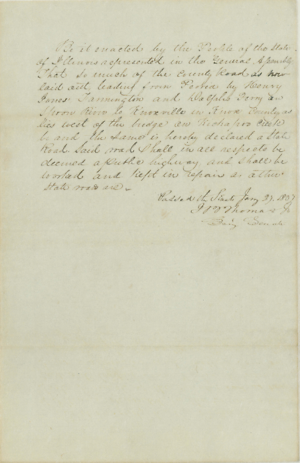 Be it enacted by the People of the State
of Illinois represented in the General Assembly
That so much of the County Road as now
laid out, leading from Peoria by
James Farmington and Ferry on
Spoon River to Knoxville in Knox County as
lies west of the bridge on Kickapoo Creek
be and the same is hereby declared a State
Road Said road shall in all respects be
deemed a public highway and shall be
worked and kept in repair as other
State roads are.
Passed the Senate Jany 31. 1837
J B Thomas Jr